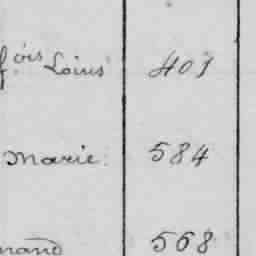 fois Loius 401
Marie 584
nand 568